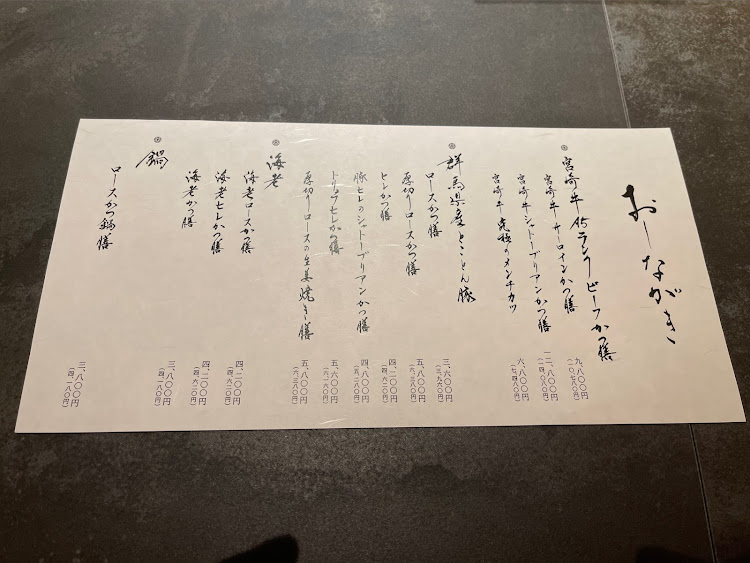 おしながき
宮崎牛A5ランクビーフかつ膳
宮崎牛サーロインかつ膳 九、八〇〇円
(一〇、七八〇円)
宮崎牛シャトーブリアンかつ膳 一二、八〇〇円
(一四、〇八〇円)
宮崎牛究極のメンチカツ 六、八〇〇円
(七、四八〇円)
群馬県産とことん豚
ロースかつ膳 三、六〇〇円
(三、九六〇円)
厚切りロースかつ膳 五、八〇〇円
(六、三八〇円)
ヒレかつ膳 四、二〇〇円
(四、六二〇円)
豚ヒレのシャトーブリアンかつ膳 四、八〇〇円
(五、二八〇円)
トリュフヒレかつ膳 五、六〇〇円
(六、一六〇円)
厚切りロースの生姜焼き膳 五、八〇〇円
(六、三八〇円)
海老
海老ロースかつ膳 四、二〇〇円
(四、六二〇円)
海老ヒレかつ膳 四、二〇〇円
(四、六二〇円)
海老かつ膳 三、八〇〇円
(四、一八〇円)
鍋
ロースかつ鍋膳 三、八〇〇円
(四、一八〇円)